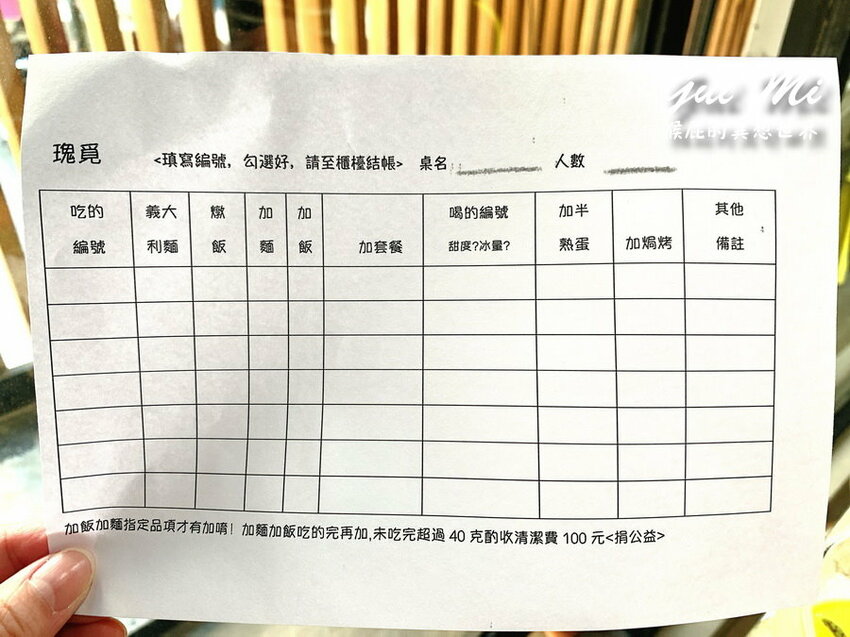 Gui Mi
瑰覓 <填寫編號，勾選好，請至櫃檯結帳> 桌名 人數
吃的編號 義大利麵 燉飯 加麵 加飯 加套餐 喝的編號 甜度?冰量? 加半熟蛋 加焗烤 其他備註
加飯加麵指定品項才有加唷！加麵加飯吃的完再加,未吃完超過 40 克酌收清潔費 100 元<捐公益>